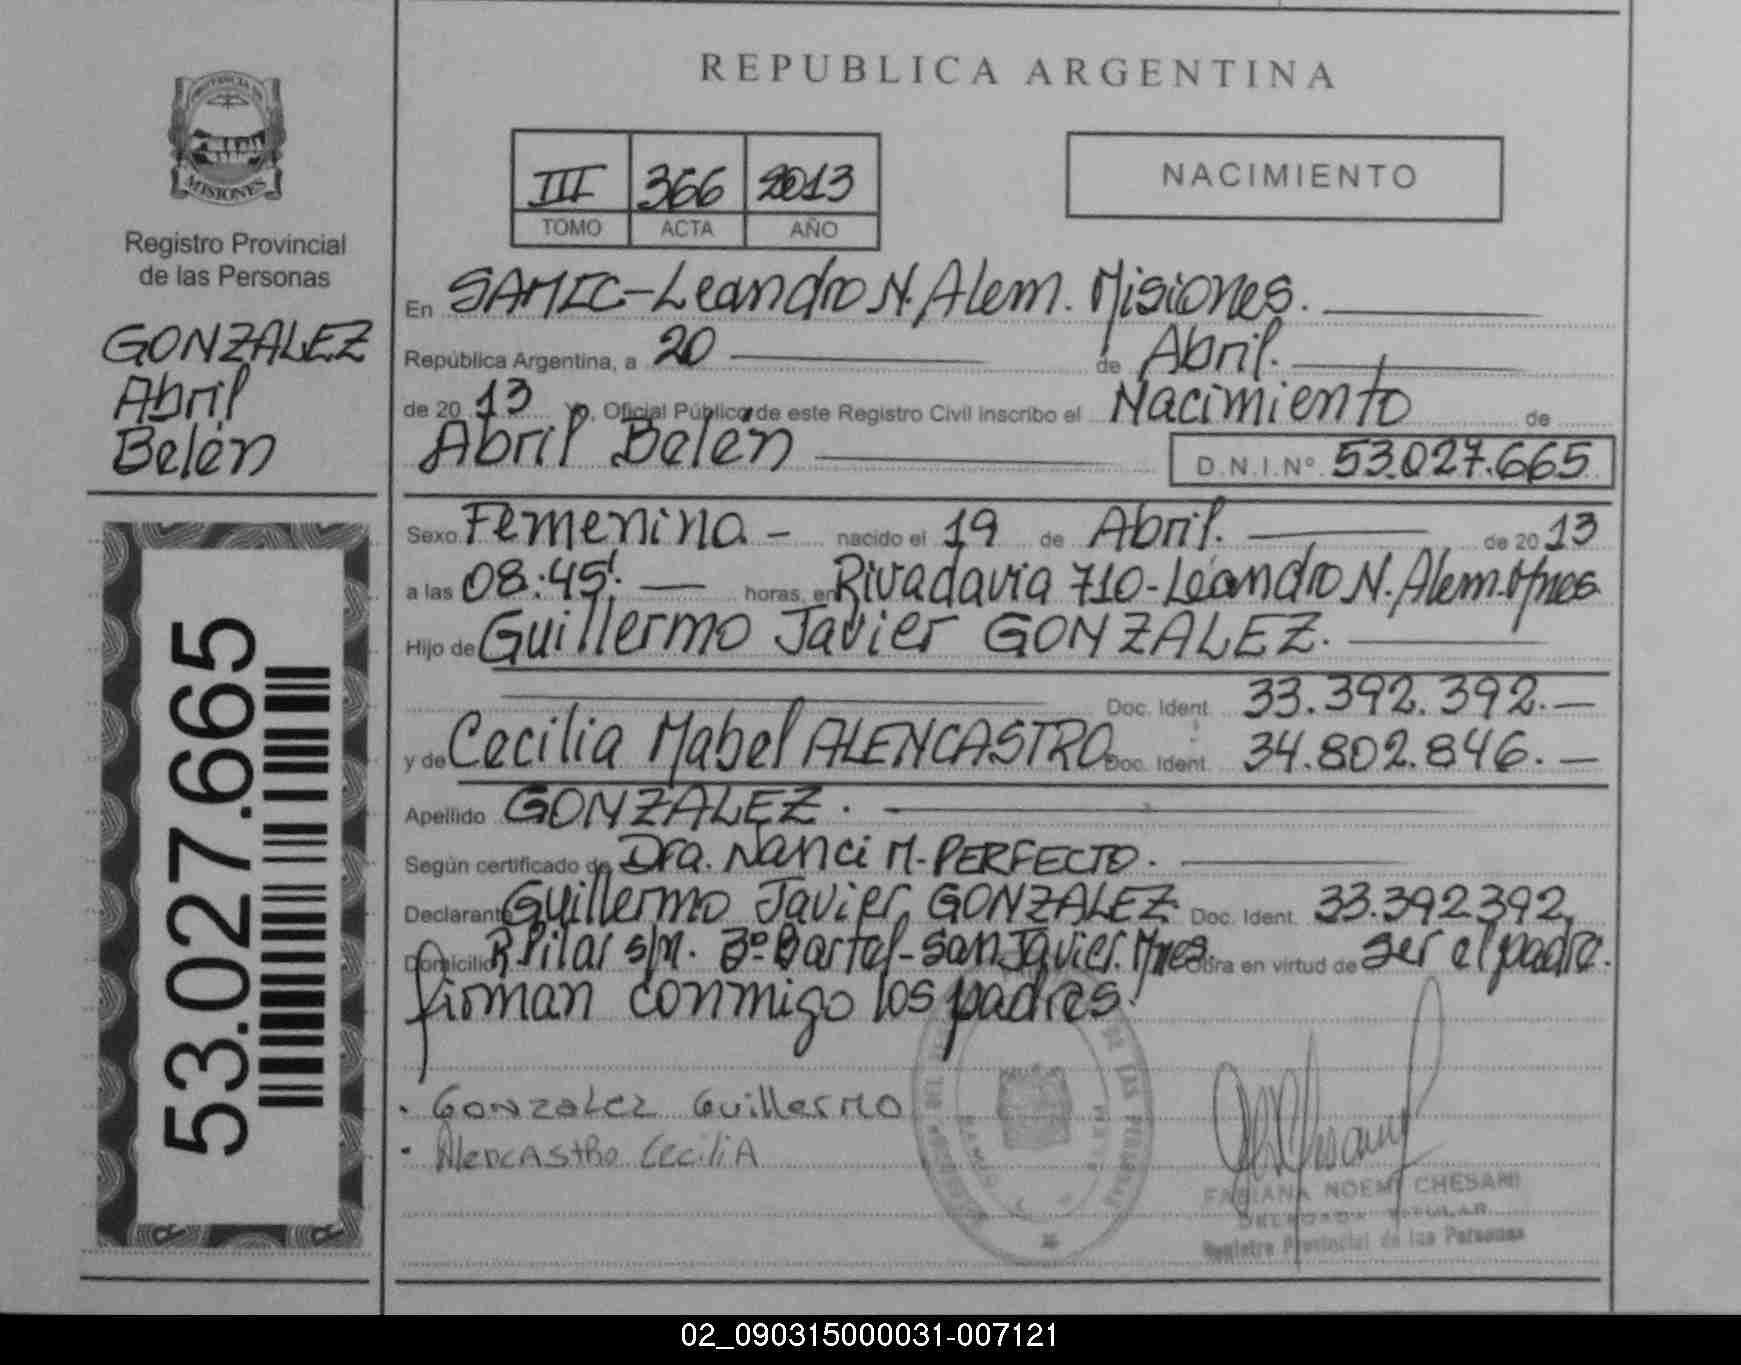 PROVINCIA DE
MISIONES
Registro Provincial
de las Personas
GONZALEZ
Abril
Belén
53.027.665
REPUBLICA ARGENTINA
III 366 2013
TOMO ACTA AÑO
NACIMIENTO
En SAMIC-Leandro N. Alem. Misiones.
República Argentina, a 20 de Abril.
de 20 13 Yo, Oficial Público de este Registro Civil inscribo el Nacimiento de
Abril Belén D.N.I.Nº 53.027.665
Sexo Femenina - nacido el 19 de Abril. de 20 13
a las 08:45'. horas, en Rivadavia 710-Leandro N. Alem. Mnes
Hijo de Guillermo Javier GONZALEZ.
Doc. Ident. 33.392.392.-
y de Cecilia Mabel ALENCASTRO Doc. Ident. 34.802.846.-
Apellido GONZALEZ.
Según certificado de Dra. Nanci M. PERFECTO.
Declarante Guillermo Javier GONZALEZ Doc. Ident. 33.392392,
Domicilio R. Pilar s/n. Bº Bartel-San Javier. Mnes. Obra en virtud de ser el padre.
firman conmigo los padres.
. Gonzalez Guillermo
- Alencastro Cecilia
FABIANA NOEMI CHESANI
DELEGADA TITULAR
Registro Provincial de las Personas
02_090315000031-007121